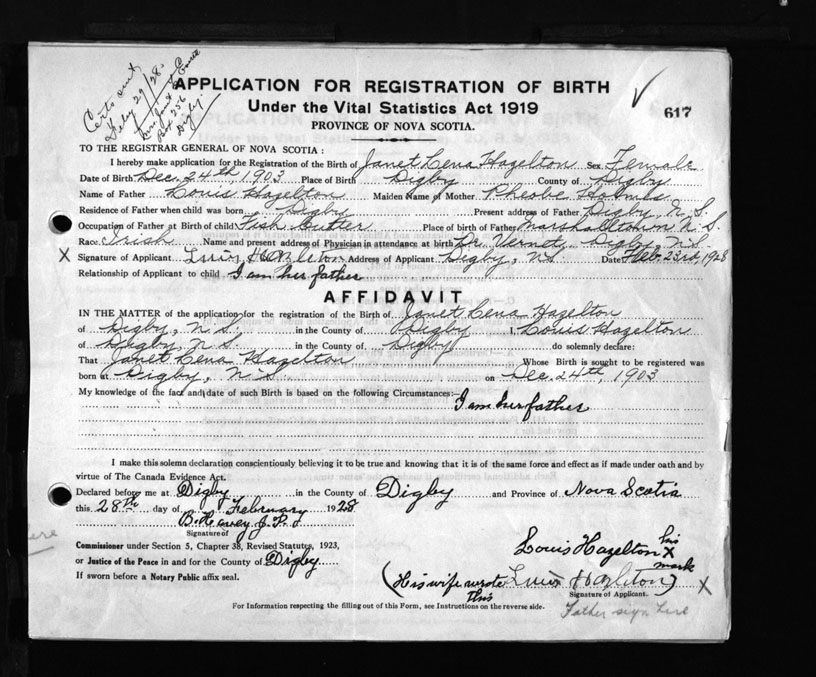 Certs sent
Feby 29/28
Digby
APPLICATION FOR REGISTRATION OF BIRTH
617
Under the Vital Statistics Act 1919
PROVINCE OF NOVA SCOTIA.
TO THE REGISTRAR GENERAL OF NOVA SCOTIA :
I hereby make application for the Registration of the Birth of Janet Lena Hazelton Sex Female
Date of Birth Dec. 24th, 1903 Place of Birth Digby County of Digby
Name of Father Louis Hazelton Maiden Name of Mother Pheobe Holmes
Residence of Father when child was born Digby Present address of Father Digby N. S.
Occupation of Father at Birth of child Fish Cutter Place of birth of Father Marshalltown N. S.
Race Irish Name and present address of Physician in attendance at birth Dr. Vernet, Digby, N.S.
X Signature of Applicant Luis Hazleton Address of Applicant Digby, N.S. Date Feb. 23rd, 1928
Relationship of Applicant to child I am her father
AFFIDAVIT
IN THE MATTER of the application for the registration of the Birth of Janet Lena Hazelton
of Digby, N.S. in the County of Digby I, Louis Hazelton
of Digby, N.S. in the County of Digby do solemnly declare:
That Janet Lena Hazelton Whose Birth is sought to be registered was
born at Digby, N.S. on Dec. 24th, 1903
My knowledge of the fact and date of such Birth is based on the following Circumstances:— I am her father
I make this solemn declaration conscientiously believing it to be true and knowing that it is of the same force and effect as if made under oath and by
virtue of The Canada Evidence Act.
Declared before me at Digby in the County of Digby and Province of Nova Scotia
this 28th day of February 1928
B. Havey J.P.
Signature of
Commissioner under Section 5, Chapter 38, Revised Statutes, 1923,
or Justice of the Peace in and for the County of Digby
If sworn before a Notary Public affix seal.
Louis Hazelton his X mark
(His wife wrote this Luis Hazleton) X
Signature of Applicant.
Father sign here
For Information respecting the filling out of this Form, see Instructions on the reverse side.